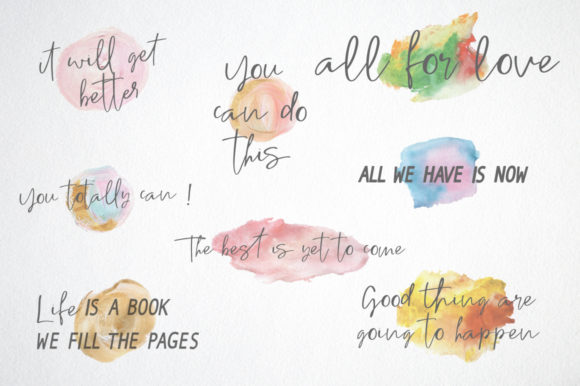 it will get
better
you
can do
this
all for love
you totally can !
ALL WE HAVE IS NOW
The best is yet to come
Life IS A BOOK
WE FILL THE PAGES
Good thing are
going to happen